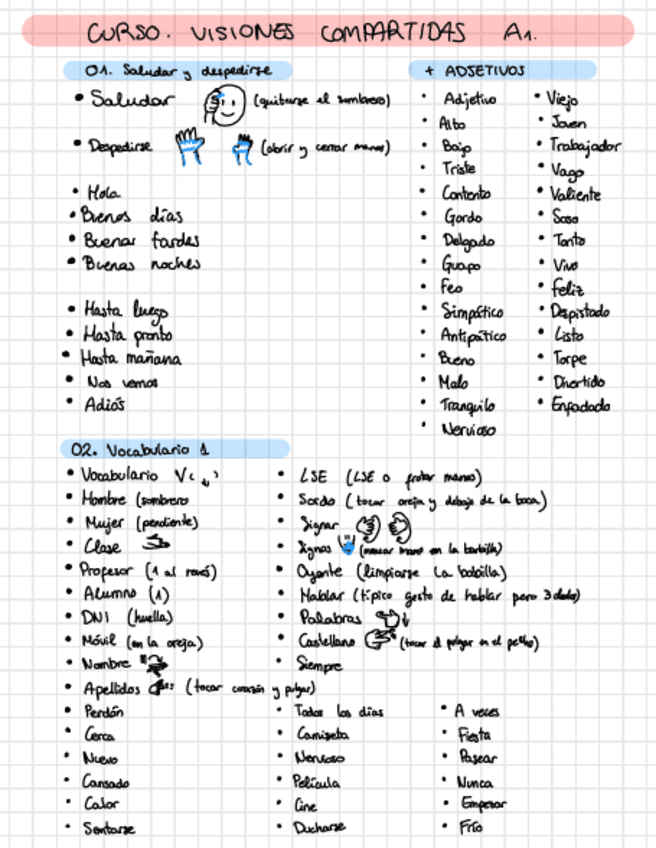 CURSO. VISIONES COMPARTIDAS A1.
01. Saludar y despedirse
• Saludar (quitarse el sombrero)
• Despedirse (abrir y cerrar manos)
• Hola
• Buenos días
• Buenas tardes
• Buenas noches
• Hasta luego
• Hasta pronto
• Hasta mañana
• Nos vemos
• Adiós
+ ADJETIVOS
• Adjetivo
• Alto
• Bajo
• Triste
• Contento
• Gordo
• Delgado
• Guapo
• Feo
• Simpático
• Antipático
• Bueno
• Malo
• Tranquilo
• Nervioso
• Viejo
• Joven
• Trabajador
• Vago
• Valiente
• Soso
• Tonto
• Vivo
• Feliz
• Despistado
• Listo
• Torpe
• Divertido
• Enfadado
02. Vocabulario 1
• Vocabulario V
• Hombre (sombrero
• Mujer (pendiente)
• Clase
• Profesor (1 al revés)
• Alumno (1)
• DNI (huella)
• Móvil (en la oreja)
• Nombre
• Apellidos (tocar corazón y pulgar)
• Perdón
• Cerca
• Nuevo
• Cansado
• Calor
• Sentarse
• LSE (LSE o frotar manos)
• Sordo (tocar oreja y debajo de la boca)
• Signar
• Signos (mano en la barbilla)
• Oyente (limpiarse la babilla)
• Hablar (típico gesto de hablar pero 3 dedos)
• Palabras
• Castellano (tocar el pulgar en el pecho)
• Siempre
• Todos los días
• Camiseta
• Nervioso
• Película
• Cine
• Ducharse
• A veces
• Fiesta
• Pasear
• Nunca
• Empezar
• Frío